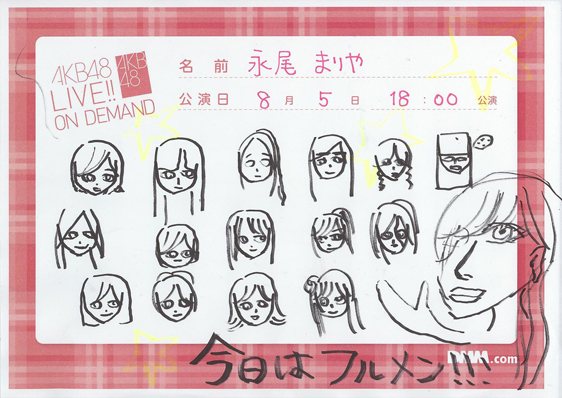 AKB48
LIVE!!
ON DEMAND
AKB
48
名 前 永尾 まりや
公演日 8 月 5 日 18 : 00 公演
今日は フルメン!!!
DMM.com